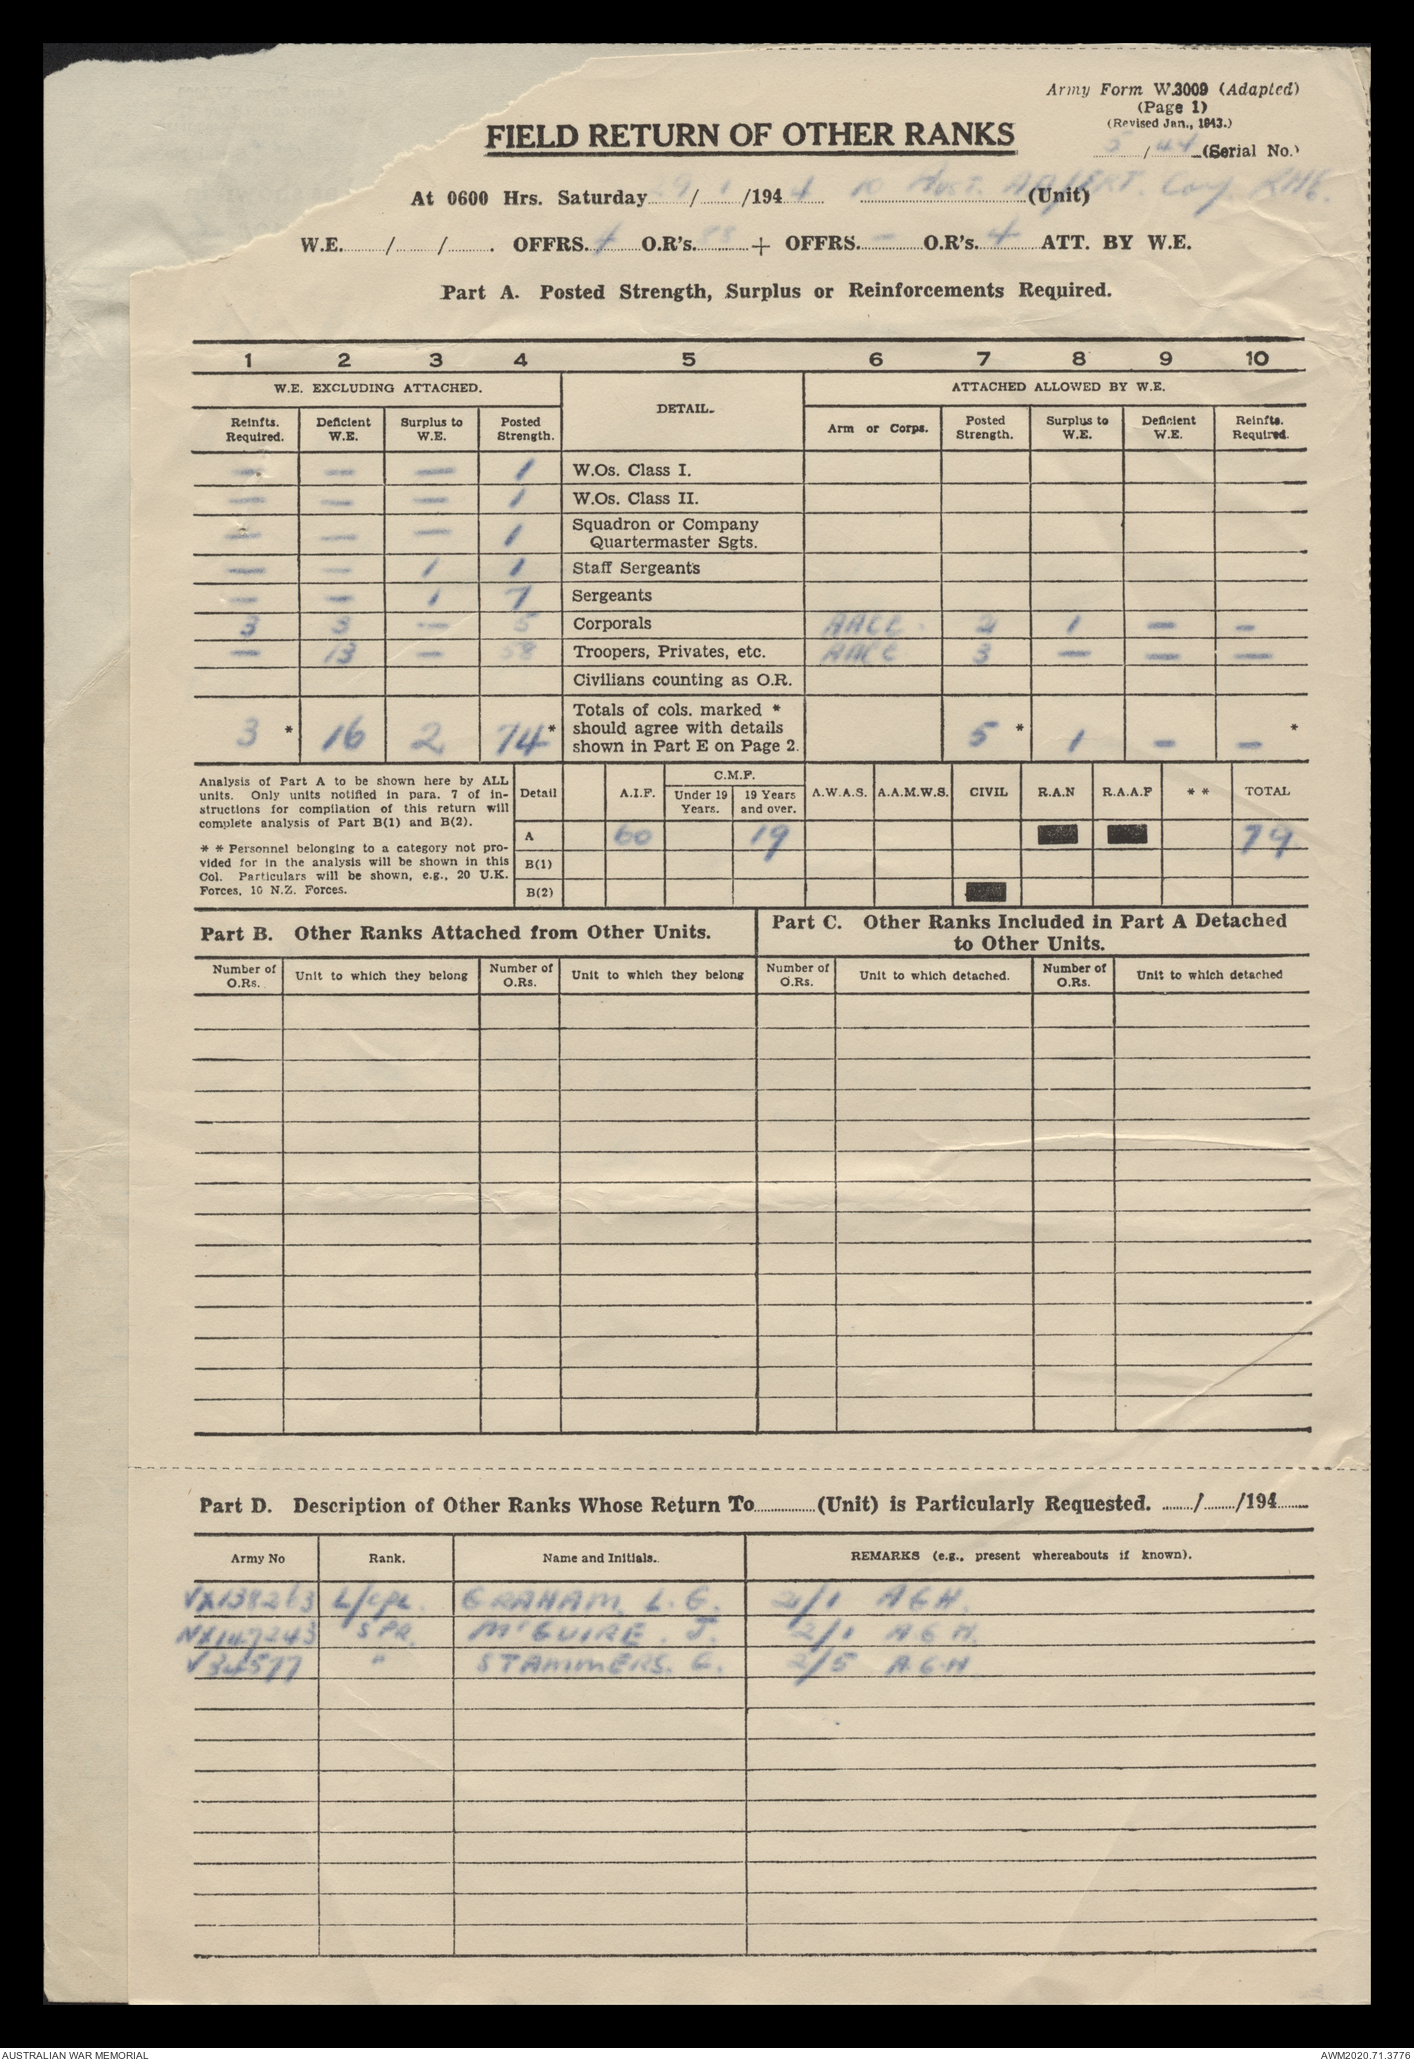 Army Form W.3009 (Adapted)
(Page 1)
(Revised Jan., 1943.)
5 / 44 (Serial No.)
FIELD RETURN OF OTHER RANKS
At 0600 Hrs. Saturday 29/1/1944 10 Aust. Coy. RAE. (Unit)
W.E. / / . OFFRS. 4 O.R's. 88 + OFFRS. — O.R's. 4 ATT. BY W.E.
Part A. Posted Strength, Surplus or Reinforcements Required.
1 2 3 4 5 6 7 8 9 10
W.E. EXCLUDING ATTACHED. DETAIL. ATTACHED ALLOWED BY W.E.
Reinfts. Required. Deficient W.E. Surplus to W.E. Posted Strength. Arm or Corps. Posted Strength. Surplus to W.E. Deficient W.E. Reinfts. Required.
— — — 1 W.Os. Class I.
— — — 1 W.Os. Class II.
— — — 1 Squadron or Company Quartermaster Sgts.
— — 1 1 Staff Sergeants
— — 1 7 Sergeants
3 3 — 5 Corporals AACC. 2 1 — —
— 13 — 58 Troopers, Privates, etc. AACC 3 — — —
Civilians counting as O.R.
3 * 16 2 74 * Totals of cols. marked * should agree with details shown in Part E on Page 2. 5 * 1 — — *
Analysis of Part A to be shown here by ALL
units. Only units notified in para. 7 of in-
structions for compilation of this return will
complete analysis of Part B(1) and B(2).
* * Personnel belonging to a category not pro-
vided for in the analysis will be shown in this
Col. Particulars will be shown, e.g., 20 U.K.
Forces, 10 N.Z. Forces.
Detail A.I.F. C.M.F. Under 19 Years. 19 Years and over. A.W.A.S. A.A.M.W.S. CIVIL R.A.N R.A.A.F * * TOTAL
A 60 19 79
B(1)
B(2)
Part B. Other Ranks Attached from Other Units.
Part C. Other Ranks Included in Part A Detached
to Other Units.
Number of O.Rs. Unit to which they belong Number of O.Rs. Unit to which they belong Number of O.Rs. Unit to which detached. Number of O.Rs. Unit to which detached
Part D. Description of Other Ranks Whose Return To (Unit) is Particularly Requested. / /194
Army No Rank. Name and Initials. REMARKS (e.g., present whereabouts if known).
VX138263 L/CPL. GRAHAM L. G. 2/1 AGH.
NX147243 SPR. McGUIRE. J. 2/1 A.G.H.
V34577 " STAMMERS. G. 2/5 A.G.H
AUSTRALIAN WAR MEMORIAL
AWM2020.71.3776